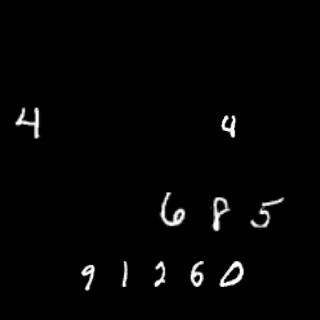 4 4
6 8 5
9 1 2 6 0